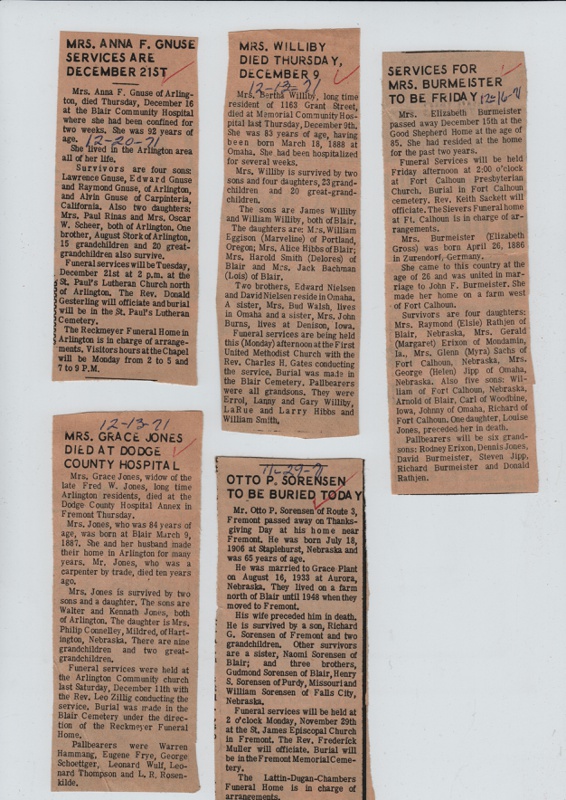 MRS. ANNA F. GNUSE
SERVICES ARE
DECEMBER 21ST
Mrs. Anna F. Gnuse of Arling-
ton, died Thursday, December 16
at the Blair Community Hospital
where she had been confined for
two weeks. She was 92 years of
age.
12-20-71
She lived in the Arlington area
all of her life.
Survivors are four sons:
Lawrence Gnuse, Edward Gnuse
and Raymond Gnuse, of Arlington,
and Alvin Gnuse of Carpinteria,
California. Also two daughters:
Mrs. Paul Rinas and Mrs. Oscar
W. Scheer, both of Arlington. One
brother, August Stork of Arlington,
15 grandchildren and 20 great-
grandchildren also survive.
Funeral services will be Tuesday,
December 21st at 2 p.m. at the
St. Paul's Lutheran Church north
of Arlington. The Rev. Donald
Gesterling will officiate and burial
will be in the St. Paul's Lutheran
Cemetery.
The Reckmeyer Funeral Home in
Arlington is in charge of arrange-
ments. Visitors hours at the Chapel
will be Monday from 2 to 5 and
7 to 9 P.M.
MRS. WILLIBY
DIED THURSDAY,
DECEMBER 9
12-13-71
Mrs. Bertha Williby, long time
resident of 1163 Grant Street,
died at Memorial Community Hos-
pital last Thursday, December 9th.
She was 83 years of age, having
been born March 18, 1888 at
Omaha. She had been hospitalized
for several weeks.
Mrs. Williby is survived by two
sons and four daughters, 23 grand-
children and 20 great-grand-
children.
The sons are James Williby
and William Williby, both of Blair.
The daughters are: Mrs. William
Eggison (Marveline) of Portland,
Oregon; Mrs. Alice Hibbs of Blair;
Mrs. Harold Smith (Delores) of
Blair and Mrs. Jack Bachman
(Lois) of Blair.
Two brothers, Edward Nielsen
and David Nielsen reside in Omaha.
A sister, Mrs. Bud Walsh, lives
in Omaha and a sister, Mrs. John
Burns, lives at Denison, Iowa.
Funeral services are being held
this (Monday) afternoon at the First
United Methodist Church with the
Rev. Charles H. Gates conducting
the service. Burial was made in
the Blair Cemetery. Pallbearers
were all grandsons. They were
Errol, Lanny and Gary Williby,
LaRue and Larry Hibbs and
William Smith.
SERVICES FOR
MRS. BURMEISTER
TO BE FRIDAY
12-16-71
Mrs. Elizabeth Burmeister
passed away December 15th at the
Good Shepherd Home at the age of
85. She had resided at the home
for the past two years.
Funeral Services will be held
Friday afternoon at 2:00 o'clock
at Fort Calhoun Presbyterian
Church. Burial in Fort Calhoun
cemetery. Rev. Keith Sackett will
officiate. The Sievers Funeral home
at Ft. Calhoun is in charge of ar-
rangements.
Mrs. Burmeister (Elizabeth
Gross) was born April 26, 1886
in Zurendorf, Germany.
She came to this country at the
age of 26 and was united in mar-
riage to John F. Burmeister. She
made her home on a farm west
of Fort Calhoun.
Survivors are four daughters:
Mrs. Raymond (Elsie) Rathjen of
Blair, Nebraska, Mrs. Gerald
(Margaret) Erixon of Mondamin,
Ia., Mrs. Glenn (Myra) Sachs of
Fort Calhoun, Nebraska, Mrs.
George (Helen) Jipp of Omaha,
Nebraska. Also five sons: Wil-
liam of Fort Calhoun, Nebraska,
Arnold of Blair, Carl of Woodbine,
Iowa, Johnny of Omaha, Richard of
Fort Calhoun. One daughter, Louise
Jones, preceded her in death.
Pallbearers will be six grand-
sons: Rodney Erixon, Dennis Jones,
David Burmeister, Steven Jipp,
Richard Burmeister and Donald
Rathjen.
12-13-71
MRS. GRACE JONES
DIED AT DODGE
COUNTY HOSPITAL
Mrs. Grace Jones, widow of the
late Fred W. Jones, long time
Arlington residents, died at the
Dodge County Hospital Annex in
Fremont Thursday.
Mrs. Jones, who was 84 years of
age, was born at Blair March 9,
1887. She and her husband made
their home in Arlington for many
years. Mr. Jones, who was a
carpenter by trade, died ten years
ago.
Mrs. Jones is survived by two
sons and a daughter. The sons are
Walter and Kennath Jones, both
of Arlington. The daughter is Mrs.
Philip Connelley, Mildred, of Hart-
ington, Nebraska. There are nine
grandchildren and two great-
grandchildren.
Funeral services were held at
the Arlington Community church
last Saturday, December 11th with
the Rev. Leo Zillig conducting the
service. Burial was made in the
Blair Cemetery under the direc-
tion of the Reckmeyer Funeral
Home.
Pallbearers were Warren
Hammang, Eugene Frye, George
Schoettger, Leonard Wulf, Leo-
nard Thompson and L. R. Rosen-
kilde.
11-29-71
OTTO P. SORENSEN
TO BE BURIED TODAY
Mr. Otto P. Sorensen of Route 3,
Fremont passed away on Thanks-
giving Day at his home near
Fremont. He was born July 18,
1906 at Staplehurst, Nebraska and
was 65 years of age.
He was married to Grace Plant
on August 16, 1933 at Aurora,
Nebraska. They lived on a farm
north of Blair until 1948 when they
moved to Fremont.
His wife preceded him in death.
He is survived by a son, Richard
G. Sorensen of Fremont and two
grandchildren. Other survivors
are a sister, Naomi Sorensen of
Blair; and three brothers,
Gudmond Sorensen of Blair, Henry
S. Sorensen of Purdy, Missouri and
William Sorensen of Falls City,
Nebraska.
Funeral services will be held at
2 o'clock Monday, November 29th
at the St. James Episcopal Church
in Fremont. The Rev. Frederick
Muller will officiate. Burial will
be in the Fremont Memorial Ceme-
tery.
The Lattin-Dugan-Chambers
Funeral Home is in charge of
arrangements.